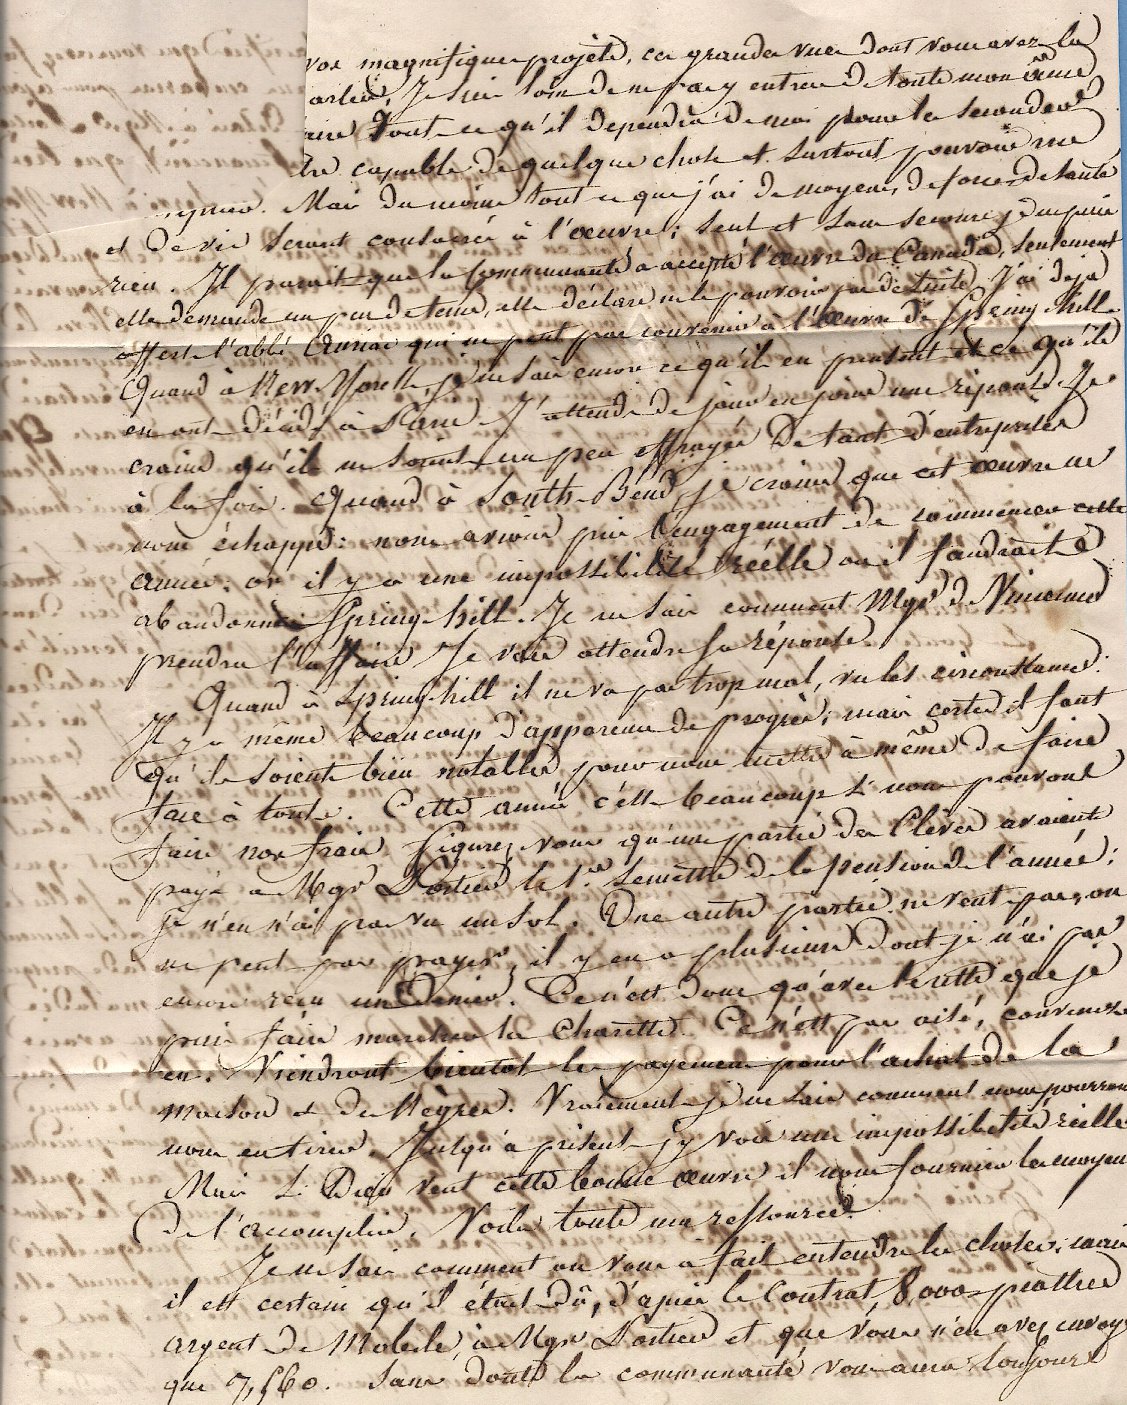 vos magnifiques projets, ces grandes vues dont vous avez la
Je suis loin de ne pas y entrer de toute mon âme
tout ce qu'il dependra de moi pour les seconder
capable de quelque chose et surtout pouvoir me
Mais du moins tout ce que j'ai de moyens, de forces de santé
et de vie seront consacrés à l'œuvre; seul et sans secours je ne puis
rien. Il parait que la Communauté a accepté l'œuvre du Canada, seulement
elle demande un peu de tems, elle déclare ne le pouvoir pas de suite. J'ai deja
offert l'abbé qui ne peut pas convenir à l'œuvre de Spring hill.
Quand à New-York, je ne sais encore ce qu'ils en pensent et ce qu'ils
en ont décidé à J'attends de jour en jour une réponse. Je
crains qu'ils ne soient un peu effrayés de tant d'entreprises
à la fois. Quand à South-Bend, je crains que cet œuvre ne
nous échappe: nous avions pris l'engagement de commencer cette
année: or il y a une impossibilité réelle ou il faudrait
abandonner Spring-hill. Je ne sais comment Mgr de Vincennes
prendra l'affaire Je vais attendre sa réponse.
Quand à Spring-hill il ne va pas trop mal, vu les circonstances:
Il y a même beaucoup d'apparence de progrès; mais certes il faut
qu'ils soient bien notables pour nous mettre à même de faire
face à tout. Cette année c'est beaucoup si nous pouvons
faire nos frais figurez vous qu'une partie des Elèves avaient
payé à Mgr Portier le 1er semestre de la pension de l'année;
Je n'en n'ai pas vu un sol. Une autre partie ne veut pas, ou
ne peut pas payer, il y en a plusieurs dont je n'ai pas
encore reçu un denier. Ce n'est donc qu'avec le reste que je
puis faire marcher la charette. Ce n'est pas aisé, convenez
en. Viendront bientot les payemens pour l'achat de la
maison et de Nègres. Vraiment je ne sais comment nous pourrons
nous en tirer. Jusqu'à présent j'y vois une impossibilité réelle
Mais si Dieu veut cette bonne œuvre il nous fournira les moyens
de l'accomplir. Voila toute ma ressource.
Je ne sais comment on vous a fait entendre les choses; mais
il est certain qu'il était dû, d'après le Contrat 8,000 piastres
argent de Mobile, à Mgr Portier et que vous n'en avez envoyé
que 7,560. Sans doute la communauté vous aura toujours